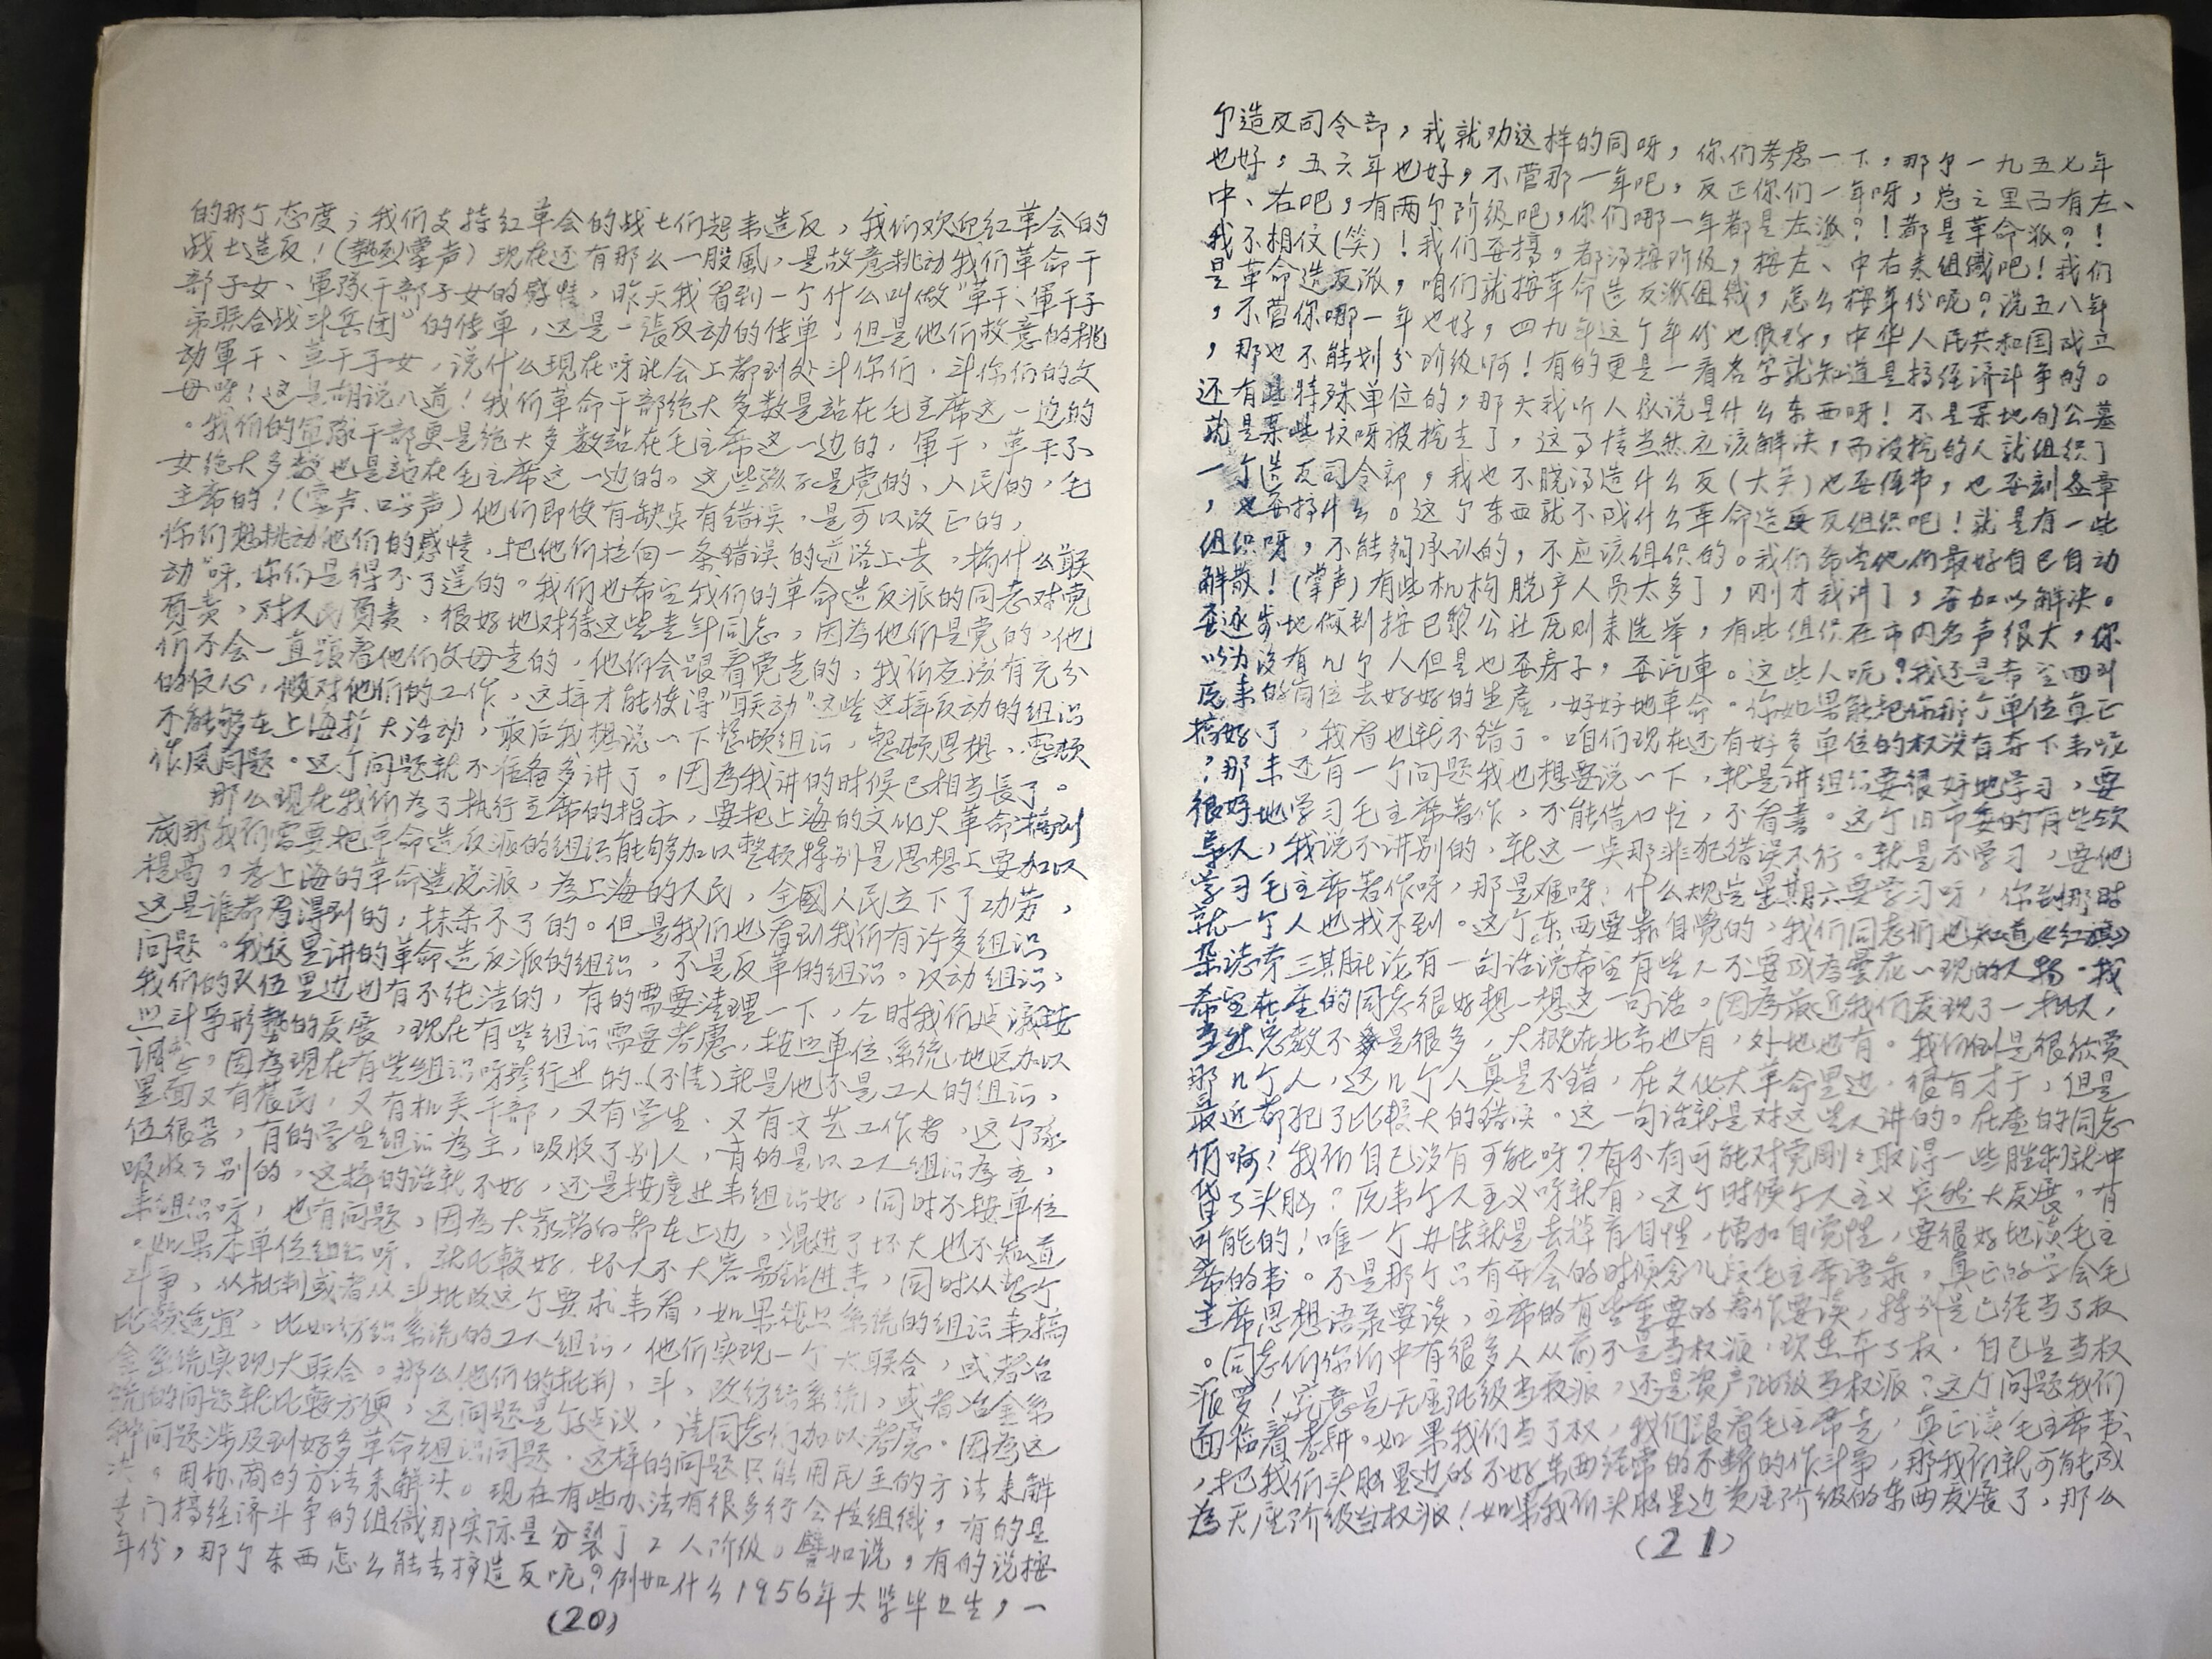 的那个态度；我们支持红革会的战士们起来造反，我们欢迎红革会的
战士造反！(热烈掌声) 现在还有那么一股風，是故意挑动我们革命干
部子女、軍隊干部子女的感情，昨天我看到一个什么叫做“革干、軍干子
弟联合战斗兵团”的传单，这是一張反动的传单，但是他们故意的挑
动軍干、革干子女，说什么现在呀社会上都到处斗你们，斗你们的父
母呀！这是胡说八道！我们革命干部绝大多数是站在毛主席这一边的
。我们的軍隊干部更是绝大多数站在毛主席这一边的，軍干，革干子
女绝大多数也是站在毛主席这一边的。这些孩子是党的、人民的，毛
主席的！(掌声、口号声) 他们即使有缺点有错误，是可以改正的，
你们想挑动他们的感情，把他们拉向一条错误的道路上去，搞什么“联
动”呀，你们是得不了逞的。我们也希望我们的革命造反派的同志对党
負责，对人民負责，很好地对待这些青年同志，因為他们是党的，他
们不会一直跟着他们父母走的，他们会跟着党走的，我们应该有充分
的信心，做对他们的工作，这样才能使得“联动”这些这样反动的组识
不能够在上海扩大活动，最后我想说一下整顿组识，整顿思想，整顿
作風问题。这个问题就不准备多讲了。因為我讲的时候已相当長了。
那么现在我们為了执行主席的指示，要把上海的文化大革命搞到
底那我们需要把革命造反派的组识能够加以整顿特别是思想上要加以
提高。為上海的革命造反派，為上海的人民，全國人民立下了功劳，
这是谁都看得到的，抹杀不了的。但是我们也看到我们有许多组识
问题。我这里讲的革命造反派的组识，不是反革的组识。反动组识，
我们的队伍里边也有不纯洁的，有的需要清理一下，仝时我们应該按
照斗爭形势的发展，现在有些组识需要考慮，按照单位系统，地区加以
调正。因為现在有些组识呀跨行业的‥(不清) 就是他不是工人的组识，
里面又有農民，又有机关干部，又有学生，又有文艺工作者，这个队
伍很杂，有的学生组识為主，吸收了别人，有的是以工人组识為主，
吸收了别的，这样的话就不好，还是按產业来组识好，同时不按单位
来组织呀，也有问题，因為大家搞的都在上边，混进了坏人也不知道
。如果本单位组织呀，就比較好，坏人不大容易钻进来，同时从整个
斗争，从批判或者从斗批改这个要求来看，如果按照系统的组识来搞
比較适宜，比如纺织系统的工人组识，他们实现一个大联合，或者冶
金系统实现大联合。那么他们的批判，斗，改纺织系统，或者冶金系
统的问题就比較方便，这问题是个建议，请同志们加以考慮。因為这
种问题涉及到好多革命组识问题，这样的问题只能用民主的方法来解
决。用协商的方法来解决。现在有些办法有很多行会性组織，有的是
专门搞经济斗争的组織那实际是分裂了工人阶级。譬如说，有的说按
年份，那个东西怎么能去搞造反呢？例如什么1956年大学毕业生，一
(20)
个造反司令部，我就劝这样的同呀，你们考虑一下，那个一九五七年
也好，五六年也好，不营那一年吧，反正你们一年呀，总之里面有左、
中、右吧，有两个阶级吧，你们哪一年都是左派？！都是革命派？！
我不相信(笑)！我们要搞，都得按阶级，按左、中右来组織吧！我们
是革命造反派，咱们就按革命造反派组織，怎么按年份呢？说五八年
，不营你哪一年也好，四九年这个年份也很好，中华人民共和国成立
，那也不能划分阶级啊！有的更是一看名字就知道是搞经济斗争的。
还有些特殊单位的，那天我听人家说是什么东西呀！不是某地的公墓
就是某些坟呀被挖走了，这事情当然应该解决，而被挖的人就组织了
一个造反司令部，我也不晓得造什么反(大笑)也要经书，也要刻图章
，也要搞什么。这个东西就不成什么革命造反组织吧！就是有一些
组织呀，不能夠承认的，不应该组织的。我们希望他们最好自己自动
解散！(掌声) 有些机构脱产人员太多了，刚才我讲了，要加以解决。
要逐步地做到按巴黎公社原则来选举，有些组织在市内名声很大，你
以为没有几个人但是也要房子，要汽車。这些人呢？我还是希望回到
原来的岗位去好好的生產，好好地革命。你如果能把你那个单位真正
搞好了，我看也就不错了。咱们现在还有好多单位的权没有夺下来呢
？那末还有一个问题我也想要说一下，就是讲组织要很好地学习，要
很好地学习毛主席著作，不能借口忙，不看書。这个旧市委的有些领
导人，我说不讲别的，就这一点那非犯错误不行。就是不学习，要他
学习毛主席著作呀，那是难呀，什么规定星期六要学习呀，你到那时
就一个人也找不到。这个东西要靠自覺的，我们同志们也知道《红旗》
杂志第三期社论有一句话说希望有些人不要成為曇花一现的人物。我
希望在座的同志很好想一想这一句话。因為最近我们发现了一批人，
当然总数不是很多，大概在北京也有，外地也有。我们倒是很欣赏
那几个人，这几个人真是不错，在文化大革命里边，很有才干，但是
最近都犯了比較大的错误。这一句话就是对这些人讲的。在座的同志
们啊！我们自己没有可能呀？有不有可能对党刚刚取得一些胜利就冲
昏了头脑？原来个人主义呀就有，这个时候个人主义突然大发展，有
可能的！唯一个办法就是去掉盲目性，增加自覚性，要很好地读毛主
席的书。不是那个只有开会的时候念几段毛主席语录，真正的学会毛
主席思想语录要读，主席的有些重要的著作要读，特别是已经当了权
。同志们你们中有很多人从前不是当权派，现在夺了权，自己是当权
派罗！究竟是无產阶级当权派，还是资产阶级当权派？这个问题我们
面临着考研。如果我们当了权，我们跟着毛主席走，真正读毛主席书、
，把我们头脑里边的不好东西经常的不断的作斗争，那我们就可能成
為无產阶级当权派！如果我们头脑里边资產阶级的东西发展了，那么
(21)